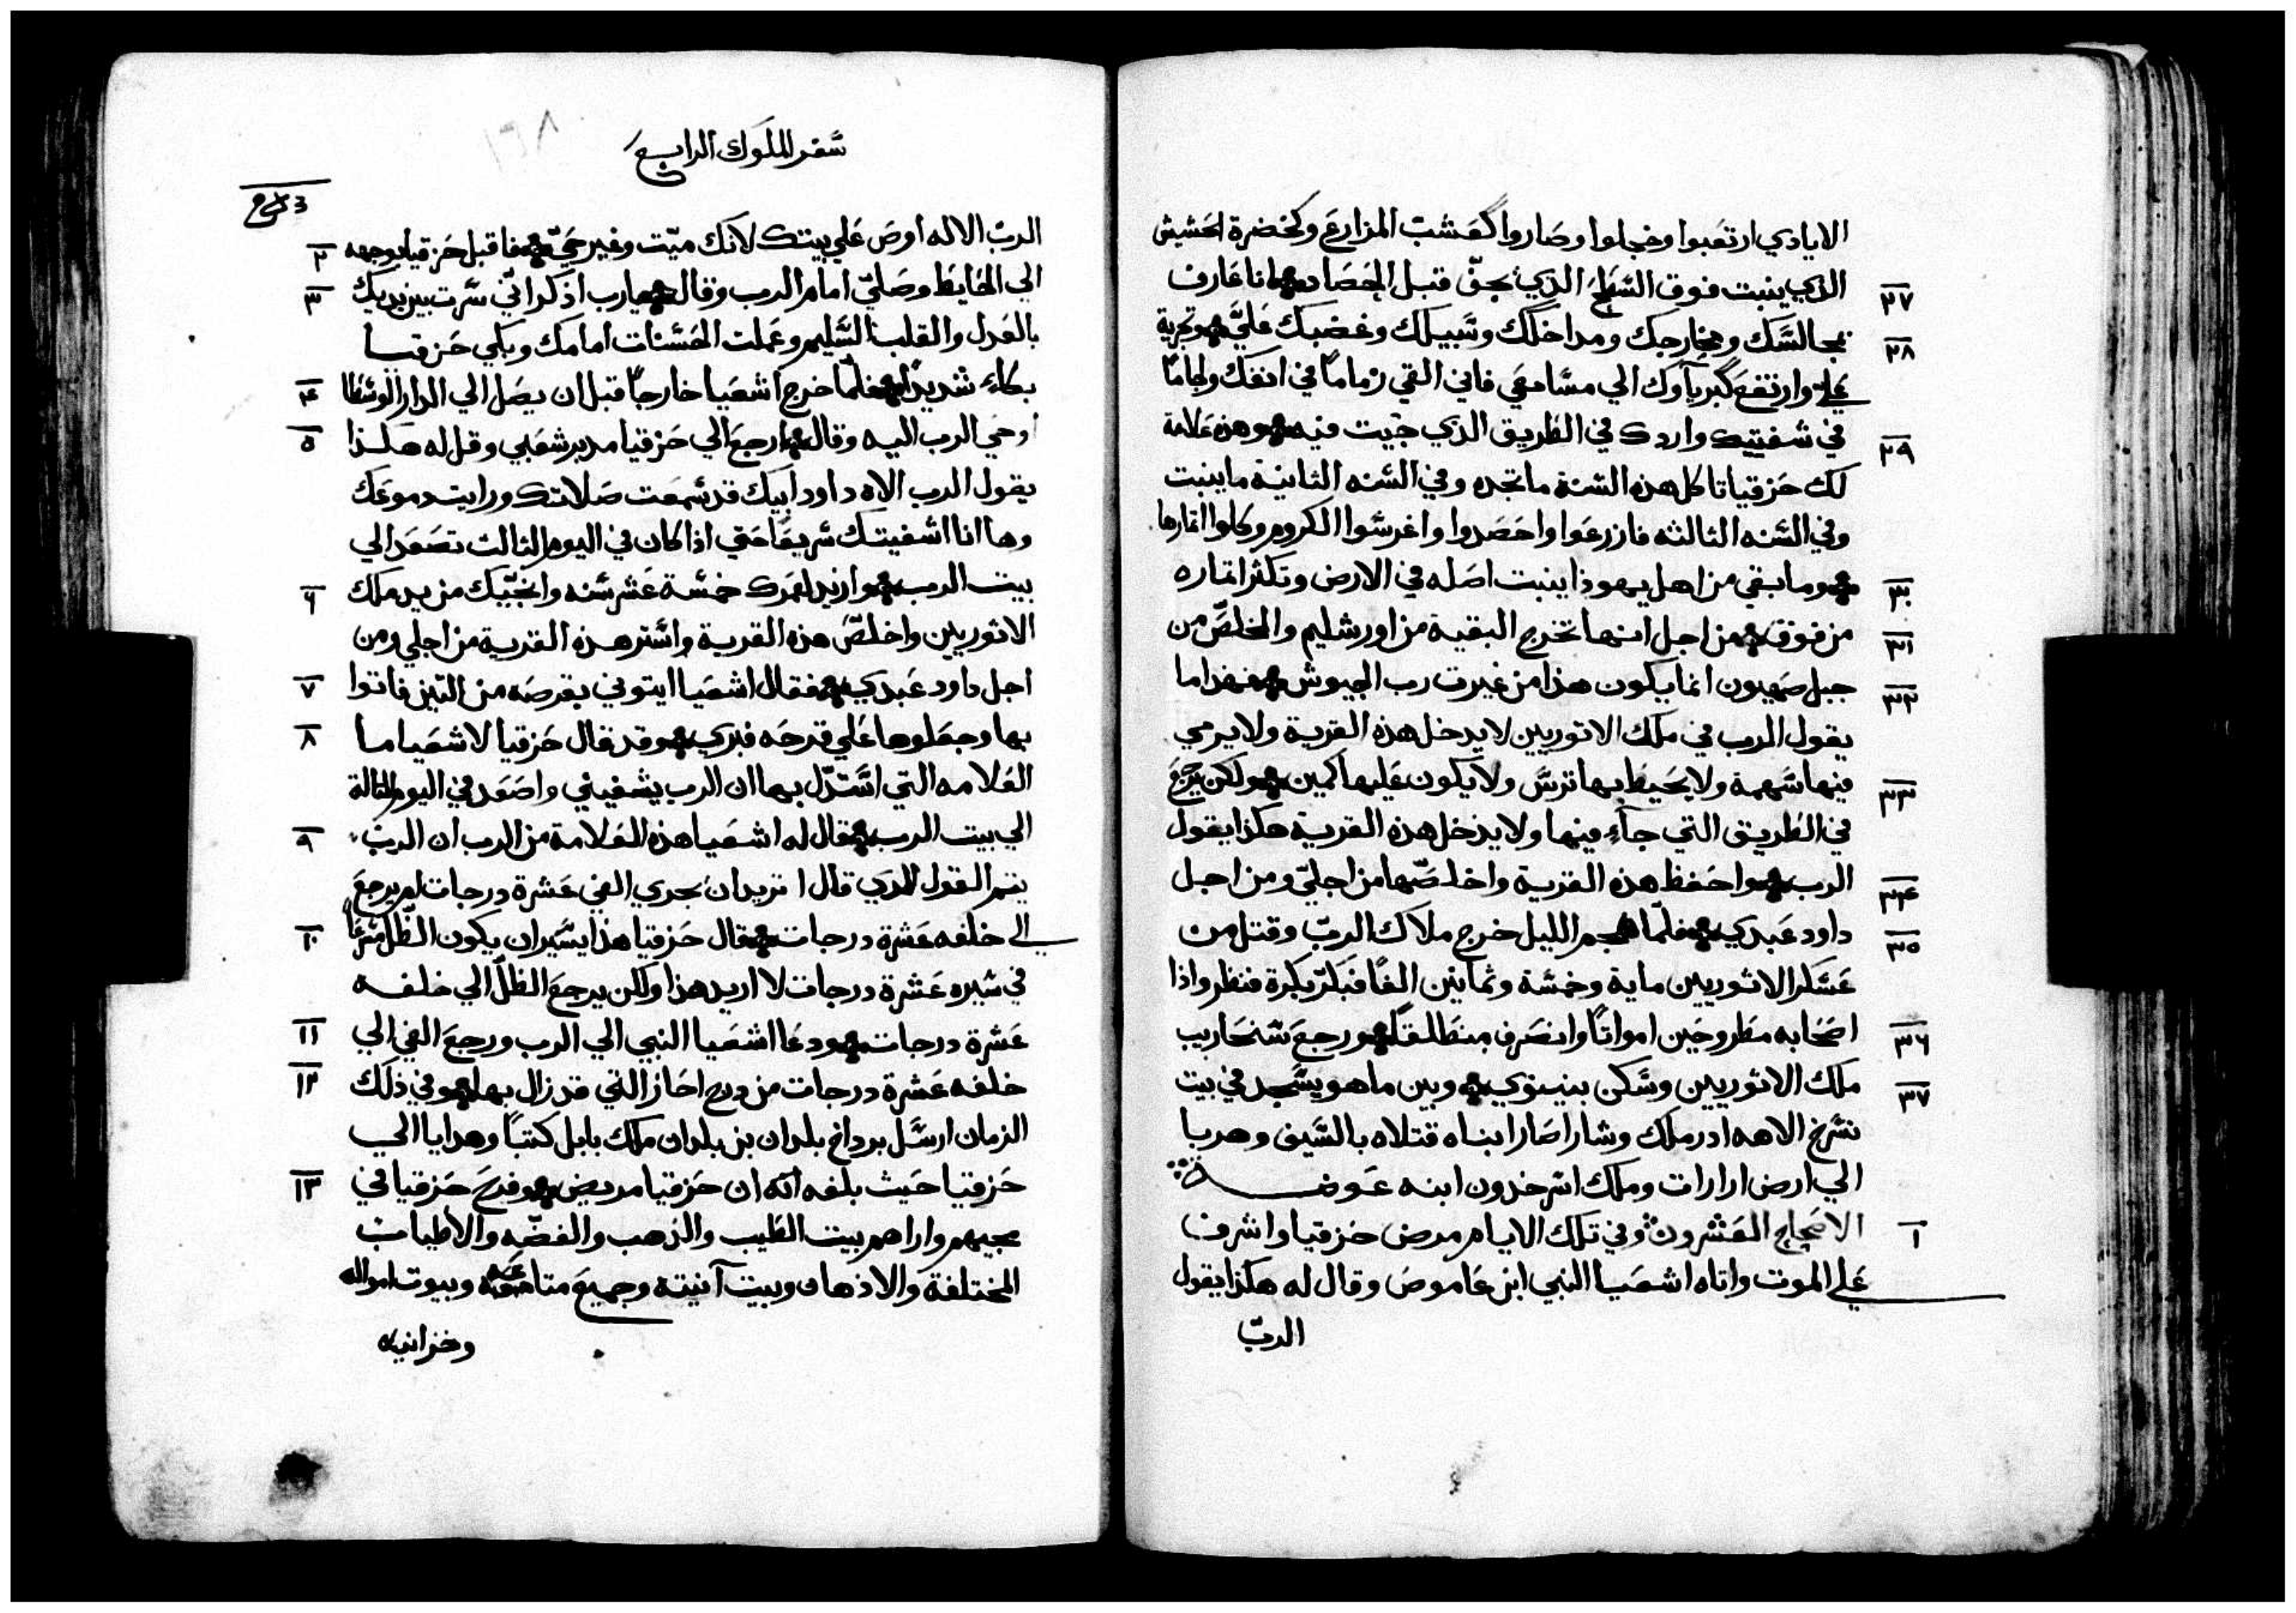 الايادي ارتعبوا وخجلوا وصاروا كعشب المزارع وكخضرة الحشيش
الذي ينبت فوق السطح الذي يجف قبل الحصاد انا عارف ٢٧
بمجالسك ومخارجك ومداخلك وسبيلك وغضبك علي وتجربة ٢٨
علي وارتفع كبرياوك الي مسامعي فاني القي زماماً في انفك ولجاماً
في شفتيك واردك في الطريق الذي جيت فيه وهذه علامة ٢٩
لك حزقيا تاكل هذه السنة ما تجده وفي السنه الثانية ما ينبت
وفي السنه الثالثه فازرعوا واحصدوا واغرسوا الكروم وكلوا اثمارها
وما بقي من اهل يهوذا ينبت اصله في الارض وتكثر اثماره ٣٠
من فوق من اجل انها تخرج البقية من اورشليم والمخلص من ٣١
جبل صهيون انما يكون هذا من غيرت رب الجيوش فهذا ما ٣٢
يقول الرب في ملك الاثوريين لا يدخل هذه القرية ولا يرمي
فيها سهمة ولا يحيط بها ترس ولا يكون عليها كمين ولكن يرجع ٣٣
في الطريق التي جآء فيها ولا يدخل هذه القرية هكذا يقول
الرب واحفظ هذه القرية واخلصها من اجلي ومن اجل ٣٤
داود عبدي فلما هجم الليل خرج ملاك الرب وقتل من ٣٥
عسكر الاثوريين ماية وخمسة وثمانين الفاً فبكر بكرة فنظر واذا
اصحابه مطروحين امواتاً وانصرف منطلقاً ورجع سنحاريب ٣٦
ملك الاثوريين وسكن بنينوي وبين ما هو يسجد في بيت ٣٧
نسرخ الاهه ادرملك وشاراصارا بناه قتلاه بالسيف وهربا
الي ارض ارارات وملك اسرحدون ابنه عوضه
الاصحاح العشرون وفي تلك الايام مرض حزقيا واشرف ١
علي الموت واتاه اشعيا النبي ابن عاموص وقال له هكذا يقول
الرب
سفر الملوك الرابع
١٦٨
الرب الاله اوص علي بيتك لانك ميت وغير حي فاقبل حزقيا بوجهه ٢
الي الحايط وصلي امام الرب وقال يارب اذكر اني سرت بين يديك ٣
بالعدل والقلب السليم وعملت الحسنات امامك وبكي حزقيا
بكاء شديداً فلما خرج اشعيا خارجاً قبل ان يصل الي الدار الوسطا ٤
اوحي الرب اليه وقال ارجع الي حزقيا مدبر شعبي وقل له هكذا ٥
يقول الرب الاه داود ابيك قد سمعت صلاتك ورايت دموعك
وها انا اشفيتك سريعاً حتي اذا كان في اليوم الثالث تصعد الي
بيت الرب وازيد لعمرك خمسة عشر سنه وانجيك من يد ملك ٦
الاثوريين واخلص هذه القرية واستر هذه القرية من اجلي ومن
اجل داود عبدي فقال اشعيا ايتوني بقرصه من التين فاتوا ٧
بها وجعلوها علي قرحه فبري وقد قال حزقيا لاشعيا ما ٨
العلامه التي استدل بها ان الرب يشفيني واصعد في اليوم الثالث
الي بيت الرب فقال له اشعيا هذه العلامة من الرب ان الرب ٩
يتم القول الذي قال اتريد ان يجري الفي عشرة درجات ام يرجع
الي خلفه عشرة درجات فقال حزقيا هذا يسير ان يكون الظل مسرعاً ١٠
في سيره عشرة درجات لا اريد هذا ولكن يرجع الظل الي خلفه
عشرة درجات ودعا اشعيا النبي الي الرب ورجع الفي الي ١١
خلفه عشرة درجات من درج احاز التي قد زال بها وفي ذلك ١٢
الزمان ارسل برداخ بلدان بن بلدان ملك بابل كتباً وهدايا الي
حزقيا حيث بلغه انه ان حزقيا مريض وفرح حزقيا في ١٣
مجيهم واراهم بيت الطيب والذهب والفضه والاطياب
المختلفة والادهان وبيت آنيتة وجميع متاعه وبيوت امواله
وخزاينه